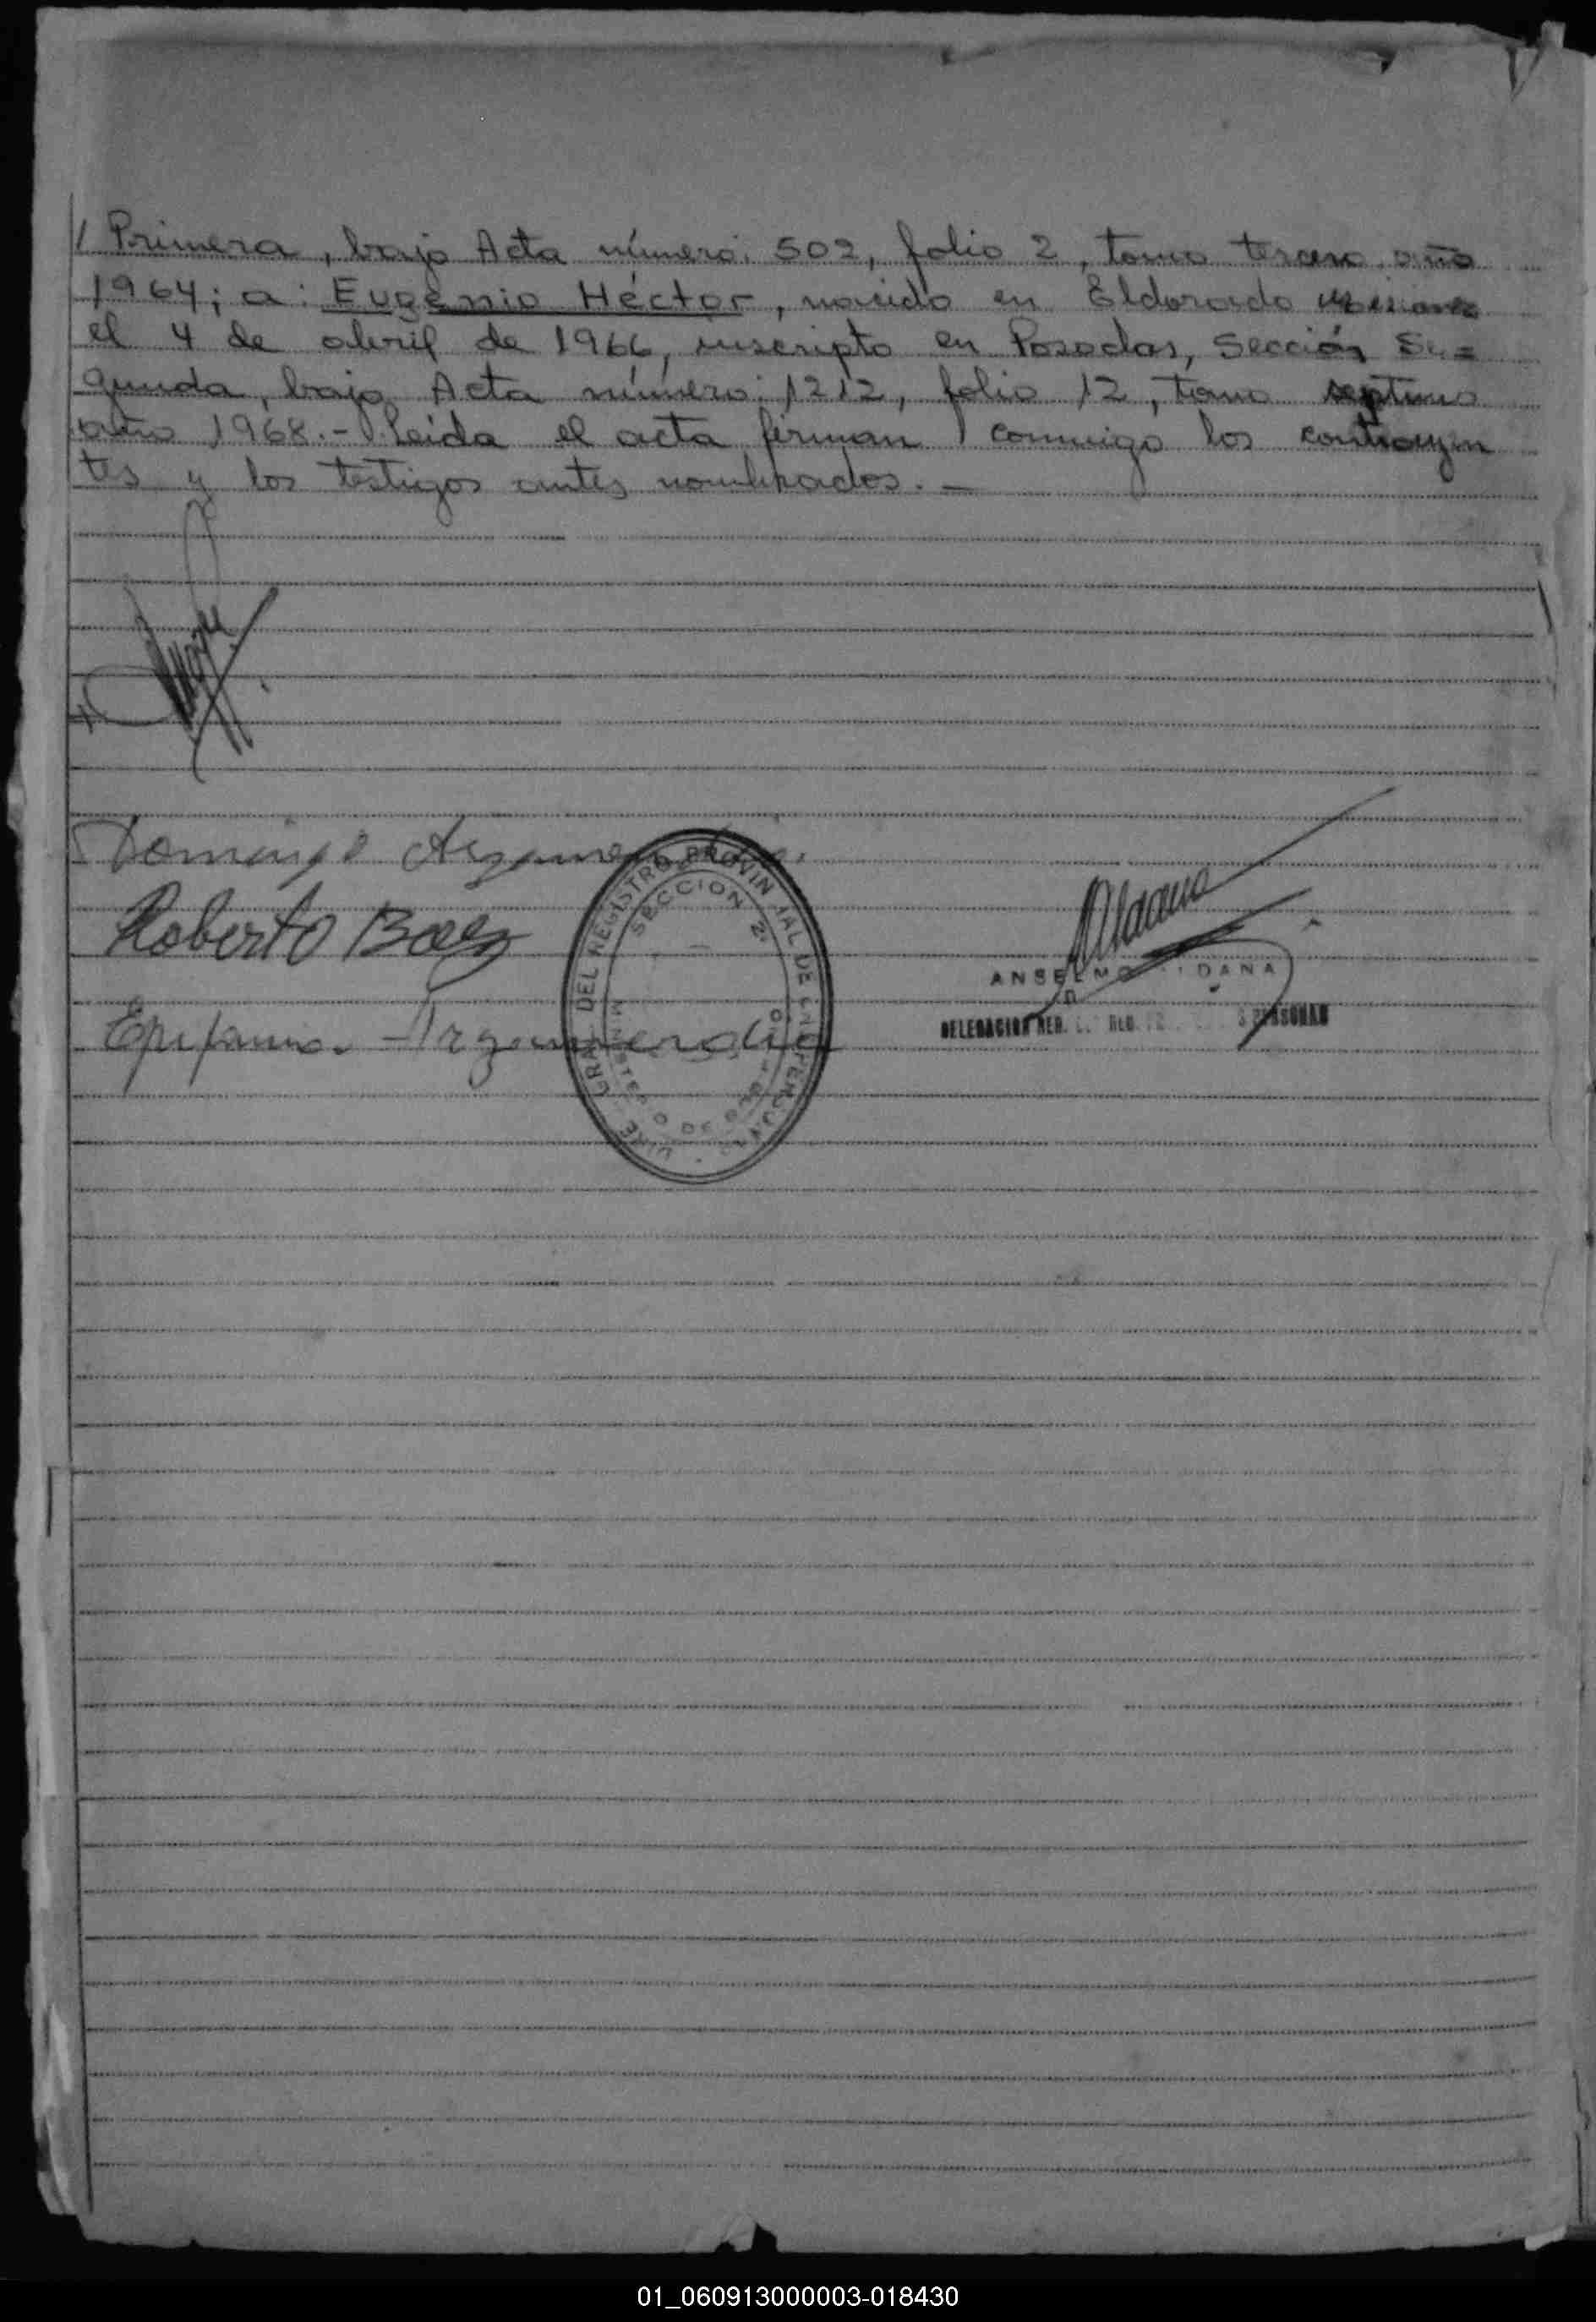 / Primera, bajo Acta número: 502, folio 2, tomo tercero año
1964; a: Eugenio Héctor, nacido en Eldorado Misiones
el 4 de abril de 1966, inscripto en Posadas, Sección Se=
gunda, bajo Acta número: 1212, folio 12, tomo septimo
año 1968.- Leida el acta firman conmigo los contrayen
tes y los testigos antes nombrados.-
Domingo
Roberto Baez
Epifanio Argumendia
SECCION 2ª
DEL REGISTRO PROVIN IAL DE LAS PERSONAS
DE
Aldana
ANSELMO DANA
DELEGACION
01_060913000003-018430